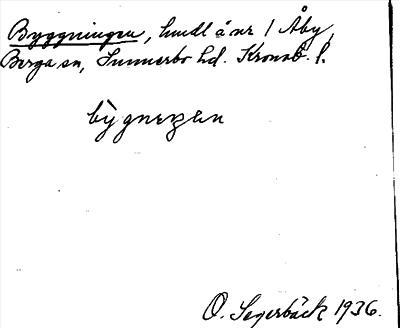 Byggningen, hmdl å nr 1 Åby,
Berga sn, Sunnerbo hd. Kronob. l.
O. Segerbäck 1936.